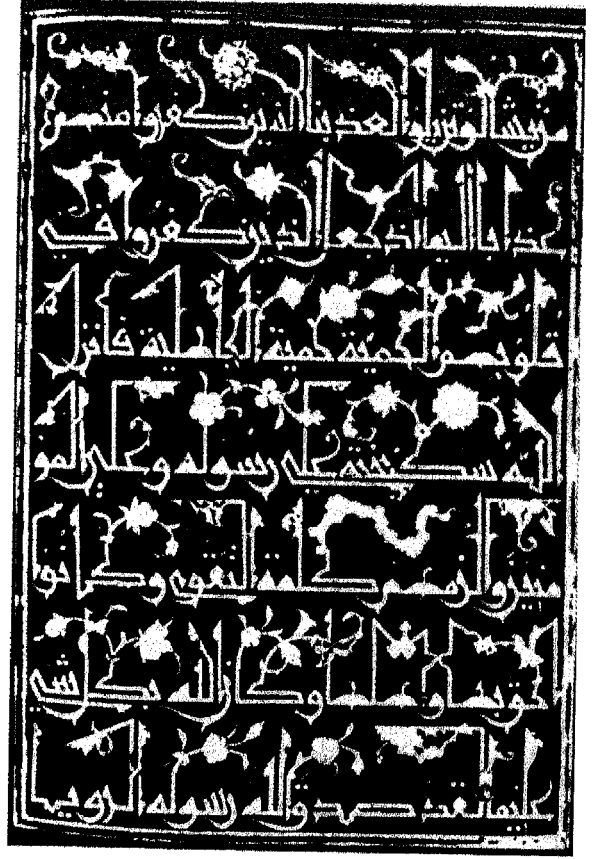 من يشا لو تزيلوا لعذبنا الذين كفروا منهم
عذابا اليما اذ جعل الذين كفروا في
قلوبهم الحمية حمية الجاهلية فانزل
الله سكينته على رسوله وعلى المؤ
منين والزمهم كلمة التقوى وكانوا
احق بها واهلها وكان الله بكل شي
عليما لقد صدق الله رسوله الرويا